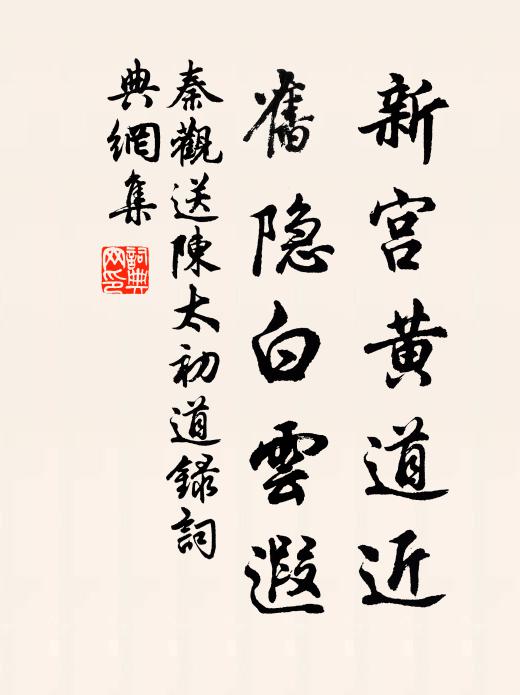 新宫黄道近
舊隐白雲遐
秦觀送陳太初道録詞
典網集
詞典
网印